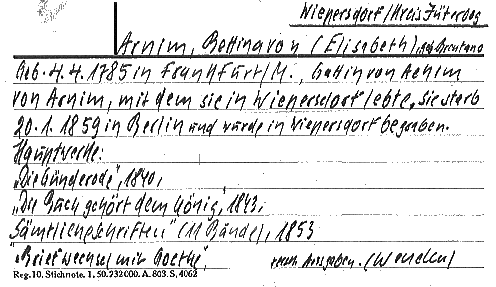 Wiepersdorf/Kreis Jüterbog
Arnim, Bettina von (Elisabeth) geb. Brentano
Geb. 4.4.1785 in Frankfurt/M., Gattin von Achim
von Arnim, mit dem sie in Wiepersdorf lebte, sie starb
20.1.1859 in Berlin und wurde in Wiepersdorf begraben.
Hauptwerke:
„Die Günderode", 1840,
„Die Buch gehört dem König, 1843,
Sämtliche Schriften" (11 Bände), 1853
„Briefwechsel mit Goethe",
Ausgaben. (Wenden)
Reg.10. Stichnote. 1. 50.732000. A. 803. S. 4062